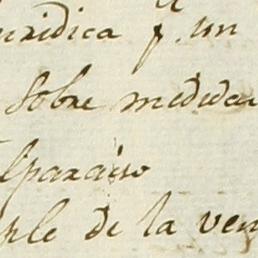 uridica p. un
Sobre medidas
lparaiso
ple de la ven